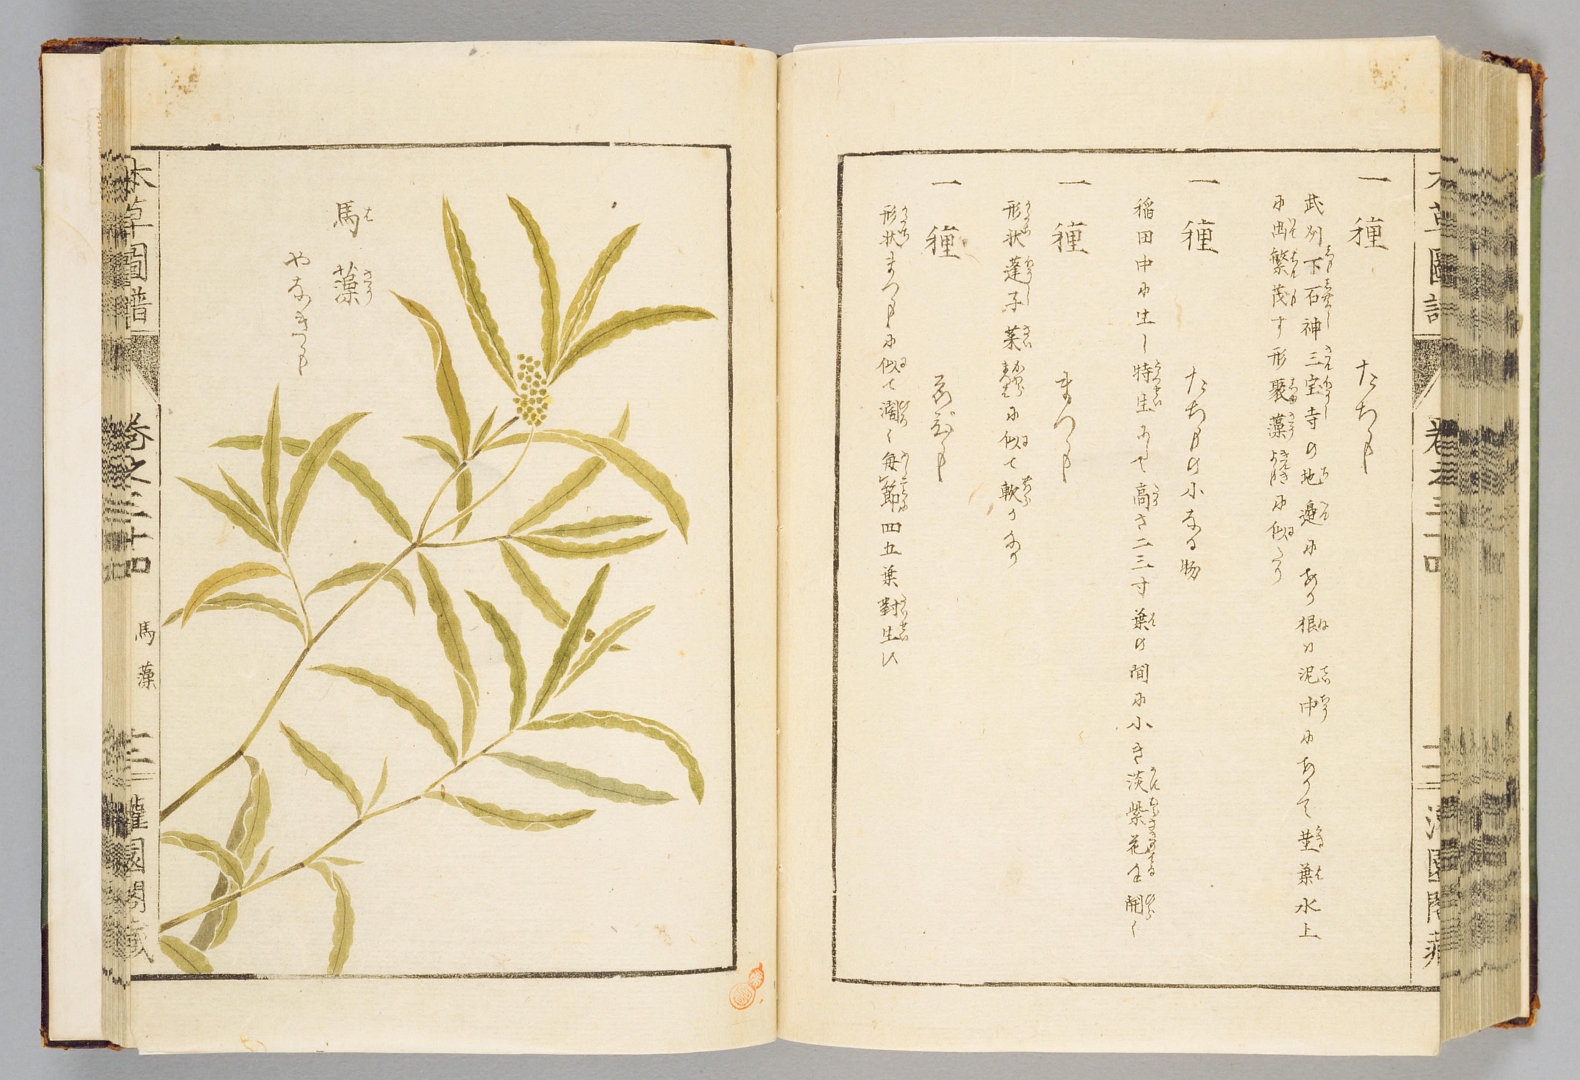 一種 たちも
武州下石神三宝寺の地邉にあり根ハ泥中にありて莖葉水上
に出繁茂す形聚藻に似たり
一種 たちもの小なる物
稲田中に生し特生にして高さ二三寸葉の間に小き淡紫花を開く
一種 まつも
形状蓬子菜に似て軟かなり
一種
形状まつもに似て濶く毎節四五葉對生ス
馬藻
やなきも
本草圖譜 巻之三十四 馬藻 十二 灌園閣藏